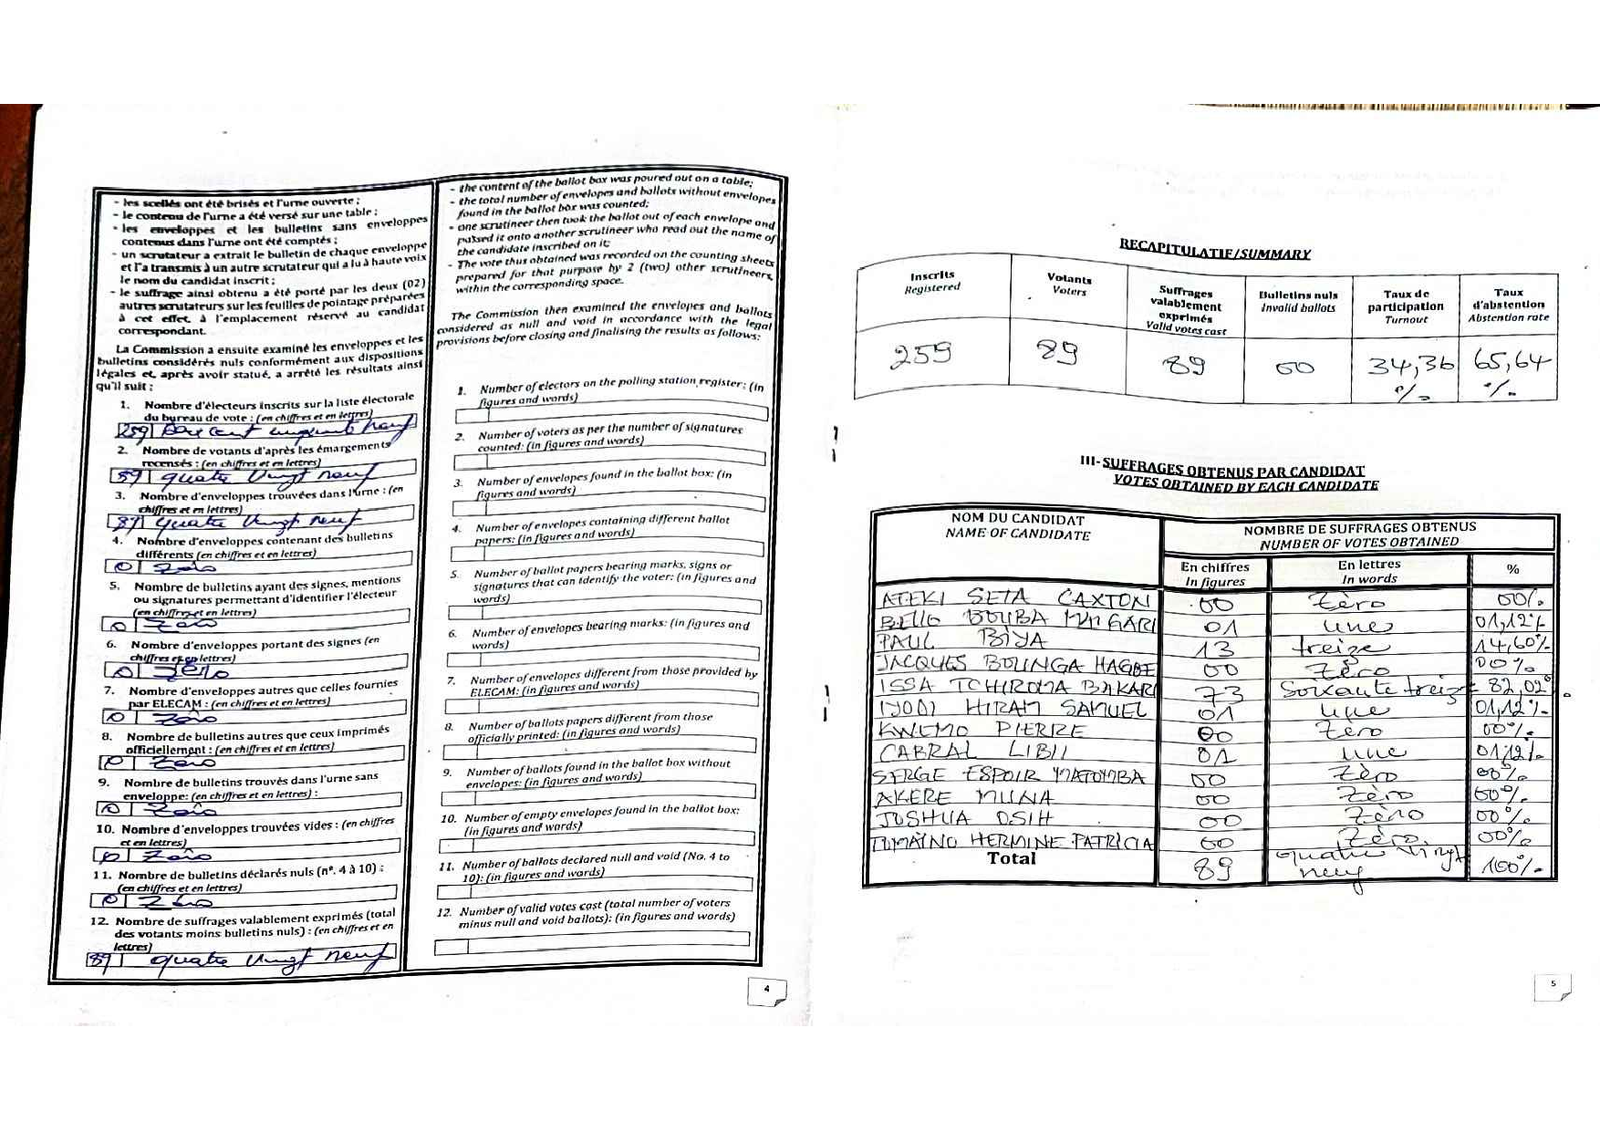 - les scellés ont été brisés et l'urne ouverte ;
- le contenu de l'urne a été versé sur une table ;
- les enveloppes et les bulletins sans enveloppes
contenus dans l'urne ont été comptés ;
- un scrutateur a extrait le bulletin de chaque enveloppe
et l'a transmis à un autre scrutateur qui a lu à haute voix
le nom du candidat inscrit ;
- le suffrage ainsi obtenu a été porté par les deux (02)
autres scrutateurs sur les feuilles de pointage préparées
à cet effet, à l'emplacement réservé au candidat
correspondant.
La Commission a ensuite examiné les enveloppes et les
bulletins considérés nuls conformément aux dispositions
légales et, après avoir statué, a arrêté les résultats ainsi
qu'il suit :
1. Nombre d'électeurs inscrits sur la liste électorale
du bureau de vote : (en chiffres et en lettres)
259 Deux cent cinquante neuf
2. Nombre de votants d'après les émargements
recensés : (en chiffres et en lettres)
89 quatre vingt neuf
3. Nombre d'enveloppes trouvées dans l'urne : (en
chiffres et en lettres)
89 quatre vingt neuf
4. Nombre d'enveloppes contenant des bulletins
différents (en chiffres et en lettres)
0 Zéro
5. Nombre de bulletins ayant des signes, mentions
ou signatures permettant d'identifier l'électeur
(en chiffres et en lettres)
0 Zéro
6. Nombre d'enveloppes portant des signes (en
chiffres et en lettres)
0 Zéro
7. Nombre d'enveloppes autres que celles fournies
par ELECAM : (en chiffres et en lettres)
0 Zéro
8. Nombre de bulletins autres que ceux imprimés
officiellement : (en chiffres et en lettres)
0 Zéro
9. Nombre de bulletins trouvés dans l'urne sans
enveloppe: (en chiffres et en lettres) :
0 Zéro
10. Nombre d'enveloppes trouvées vides : (en chiffres
et en lettres)
0 Zéro
11. Nombre de bulletins déclarés nuls (n°. 4 à 10) :
(en chiffres et en lettres)
0 Zéro
12. Nombre de suffrages valablement exprimés (total
des votants moins bulletins nuls) : (en chiffres et en
lettres)
89 quatre vingt neuf
- the content of the ballot box was poured out on a table;
- the total number of envelopes and ballots without envelopes
found in the ballot box was counted;
- one scrutineer then took the ballot out of each envelope and
passed it onto another scrutineer who read out the name of
the candidate inscribed on it;
- The vote thus obtained was recorded on the counting sheets
prepared for that purpose by 2 (two) other scrutineers,
within the corresponding space.
The Commission then examined the envelopes and ballots
considered as null and void in accordance with the legal
provisions before closing and finalising the results as follows:
1. Number of electors on the polling station register: (in
figures and words)
2. Number of voters as per the number of signatures
counted: (in figures and words)
3. Number of envelopes found in the ballot box: (in
figures and words)
4. Number of envelopes containing different ballot
papers: (in figures and words)
5. Number of ballot papers bearing marks, signs or
signatures that can identify the voter: (in figures and
words)
6. Number of envelopes bearing marks: (in figures and
words)
7. Number of envelopes different from those provided by
ELECAM: (in figures and words)
8. Number of ballots papers different from those
officially printed: (in figures and words)
9. Number of ballots found in the ballot box without
envelopes: (in figures and words)
10. Number of empty envelopes found in the ballot box:
(in figures and words)
11. Number of ballots declared null and void (No. 4 to
10): (in figures and words)
12. Number of valid votes cast (total number of voters
minus null and void ballots): (in figures and words)
4
RECAPITULATIF/SUMMARY
Inscrits Registered
Votants Voters
Suffrages valablement exprimés Valid votes cast
Bulletins nuls Invalid ballots
Taux de participation Turnout
Taux d'abstention Abstention rate
259 89 89 00 34,36 % 65,64 %
III- SUFFRAGES OBTENUS PAR CANDIDAT
VOTES OBTAINED BY EACH CANDIDATE
NOM DU CANDIDAT
NAME OF CANDIDATE
NOMBRE DE SUFFRAGES OBTENUS
NUMBER OF VOTES OBTAINED
En chiffres In figures
En lettres In words
%
ATEKI SETA CAXTON 00 Zèro 00%
BELLO BOUBA MAIGARI 01 une 01,12%
PAUL BIYA 13 treize 14,60%
JACQUES BOUNGA HAGBE 00 Zèro 00%
ISSA TCHIROMA BAKARI 73 Soixante treize 82,02%
IYODI HIRAM SAMUEL 01 une 01,12%
KWEMO PIERRE 00 Zèro 00%
CABRAL LIBII 01 une 01,12%
SERGE ESPOIR MATOMBA 00 Zèro 00%
AKERE MUNA 00 Zèro 00%
JOSHUA OSIH 00 Zèro 00%
TOMAÏNO HERMINE PATRICIA 00 Zèro 00%
Total 89 quatre vingt neuf 100%
5